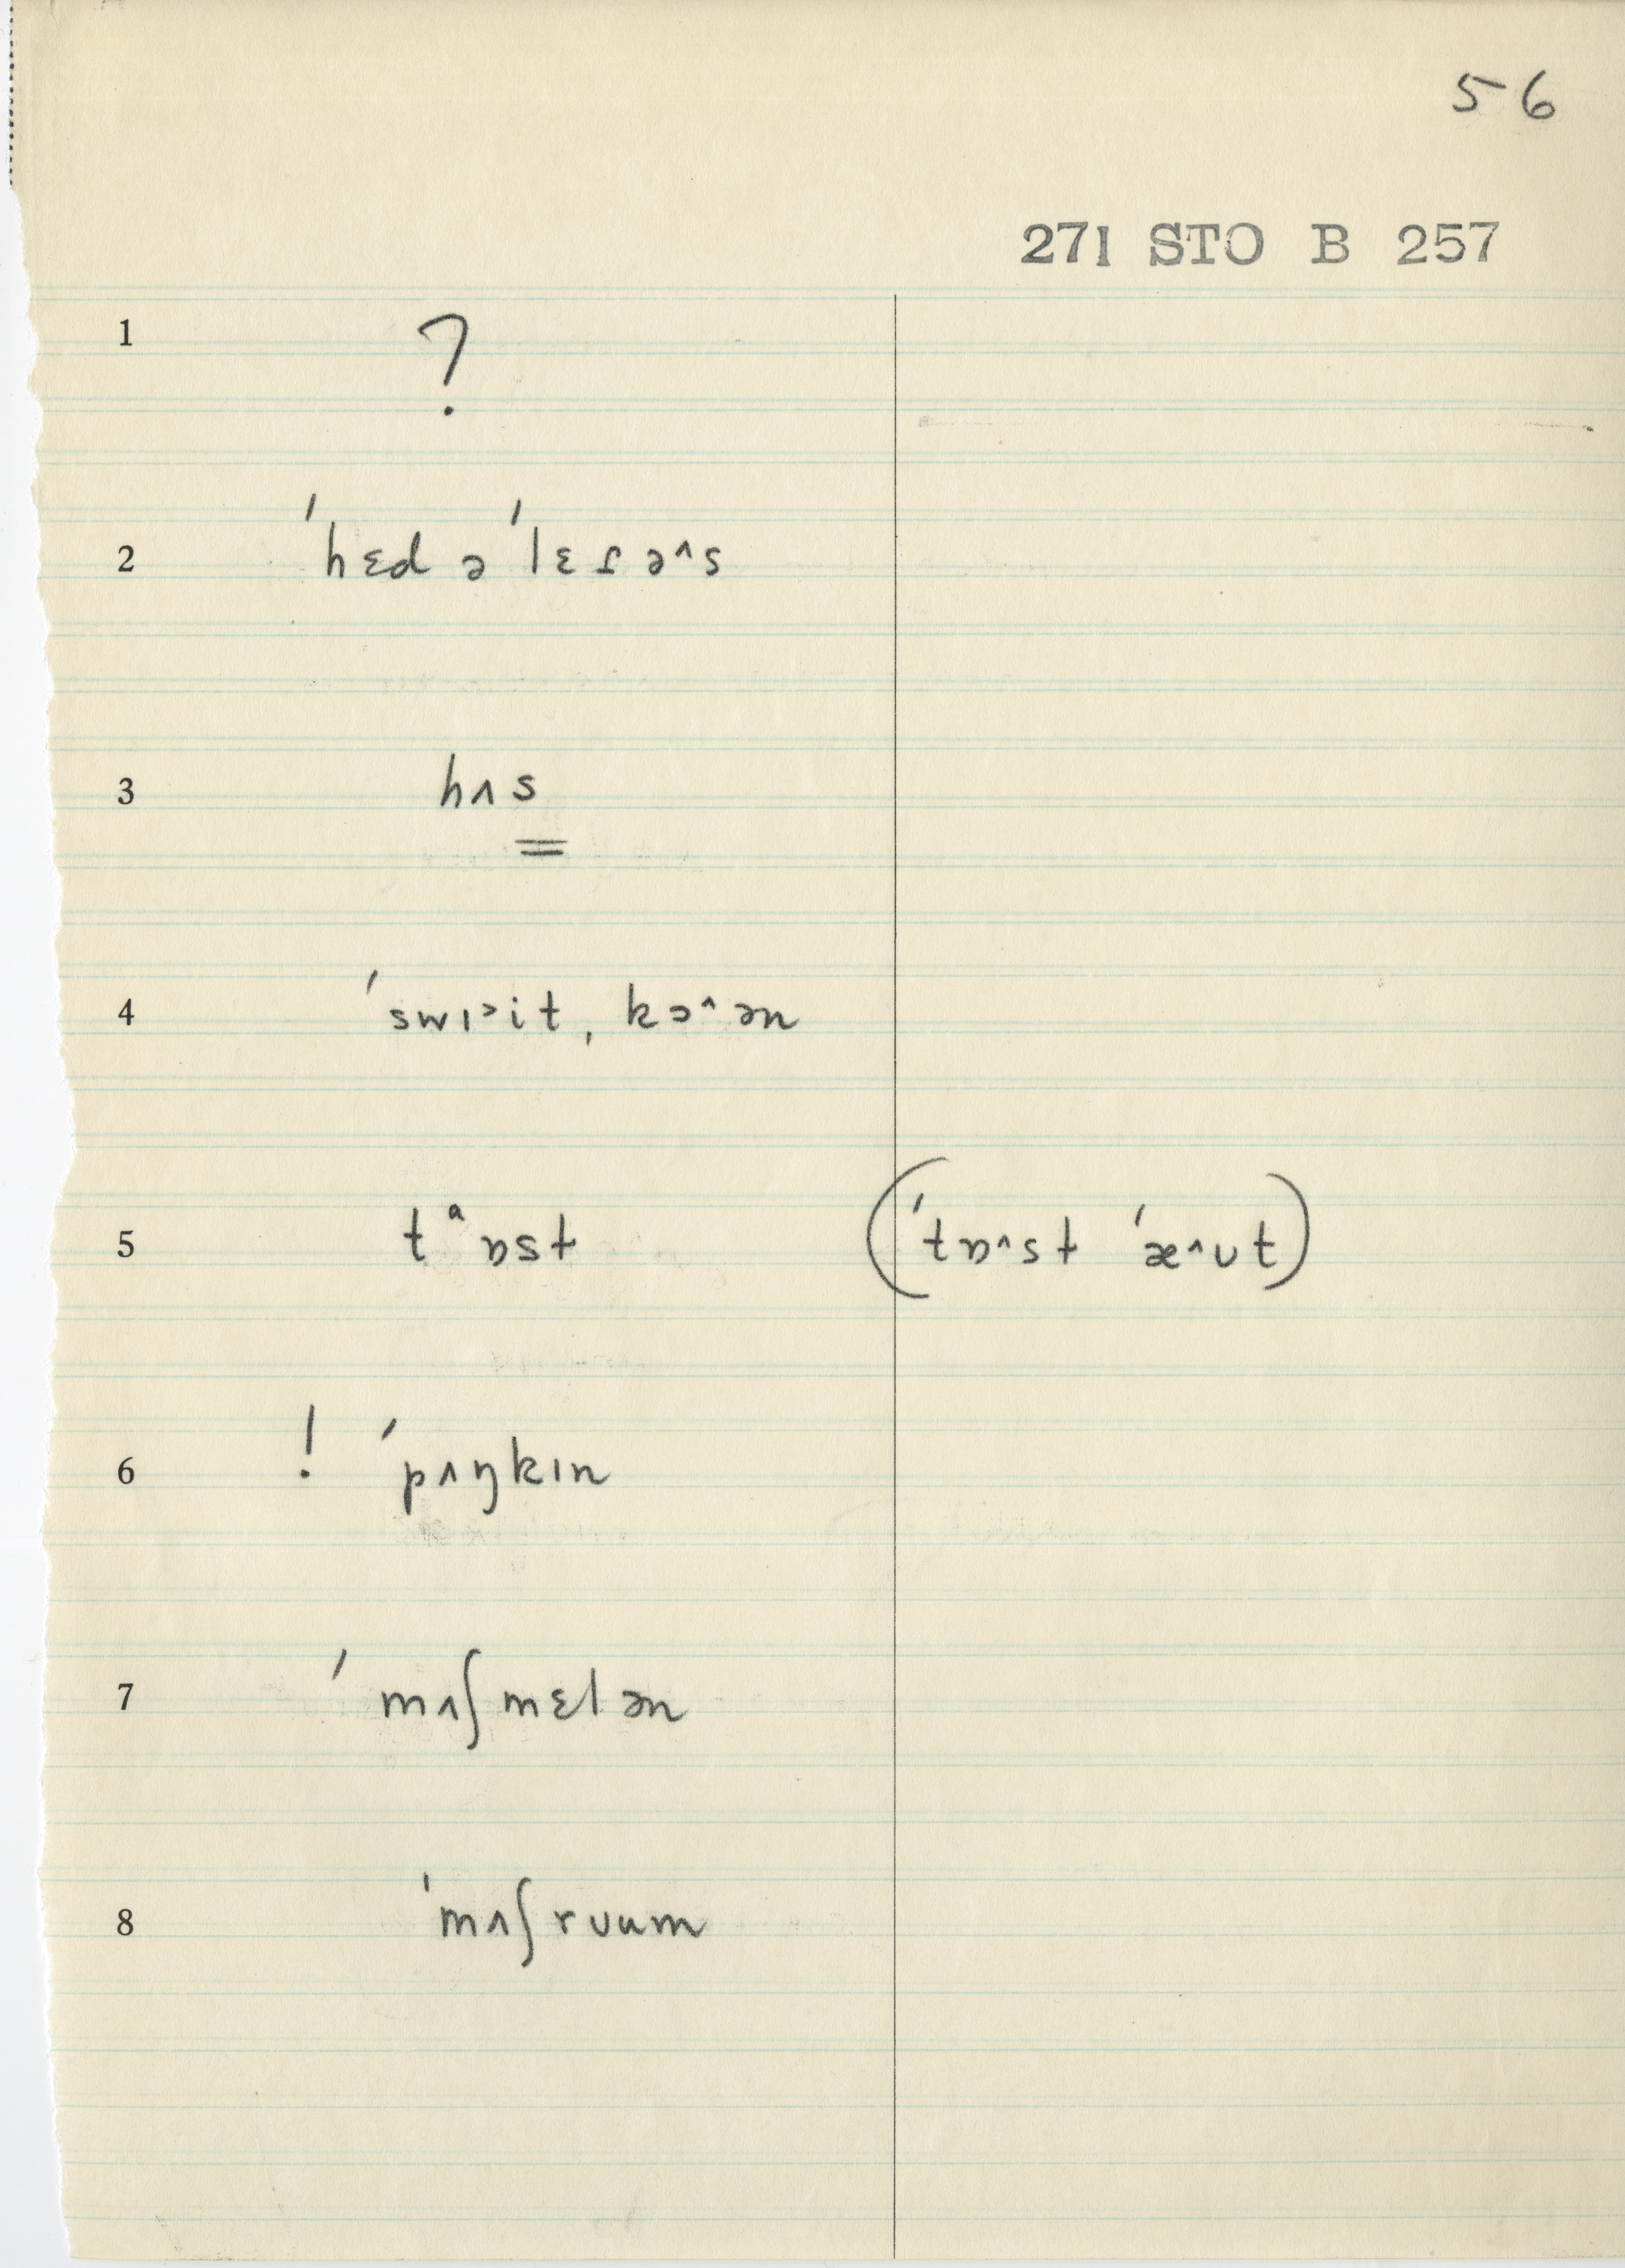 56
271 STO B 257
1 ?
2 ˈhɛd ə ˈlɛɾə^s
3 hʌs
4 ˈswɪ˃it ˌkɔ^ən
5 tᵄɒst (ˈtɒ^st ˈæ^ʊt)
6 ! ˈpʌŋkɪn
7 ˈmʌʃmɛlən
8 ˈmʌʃrʊum